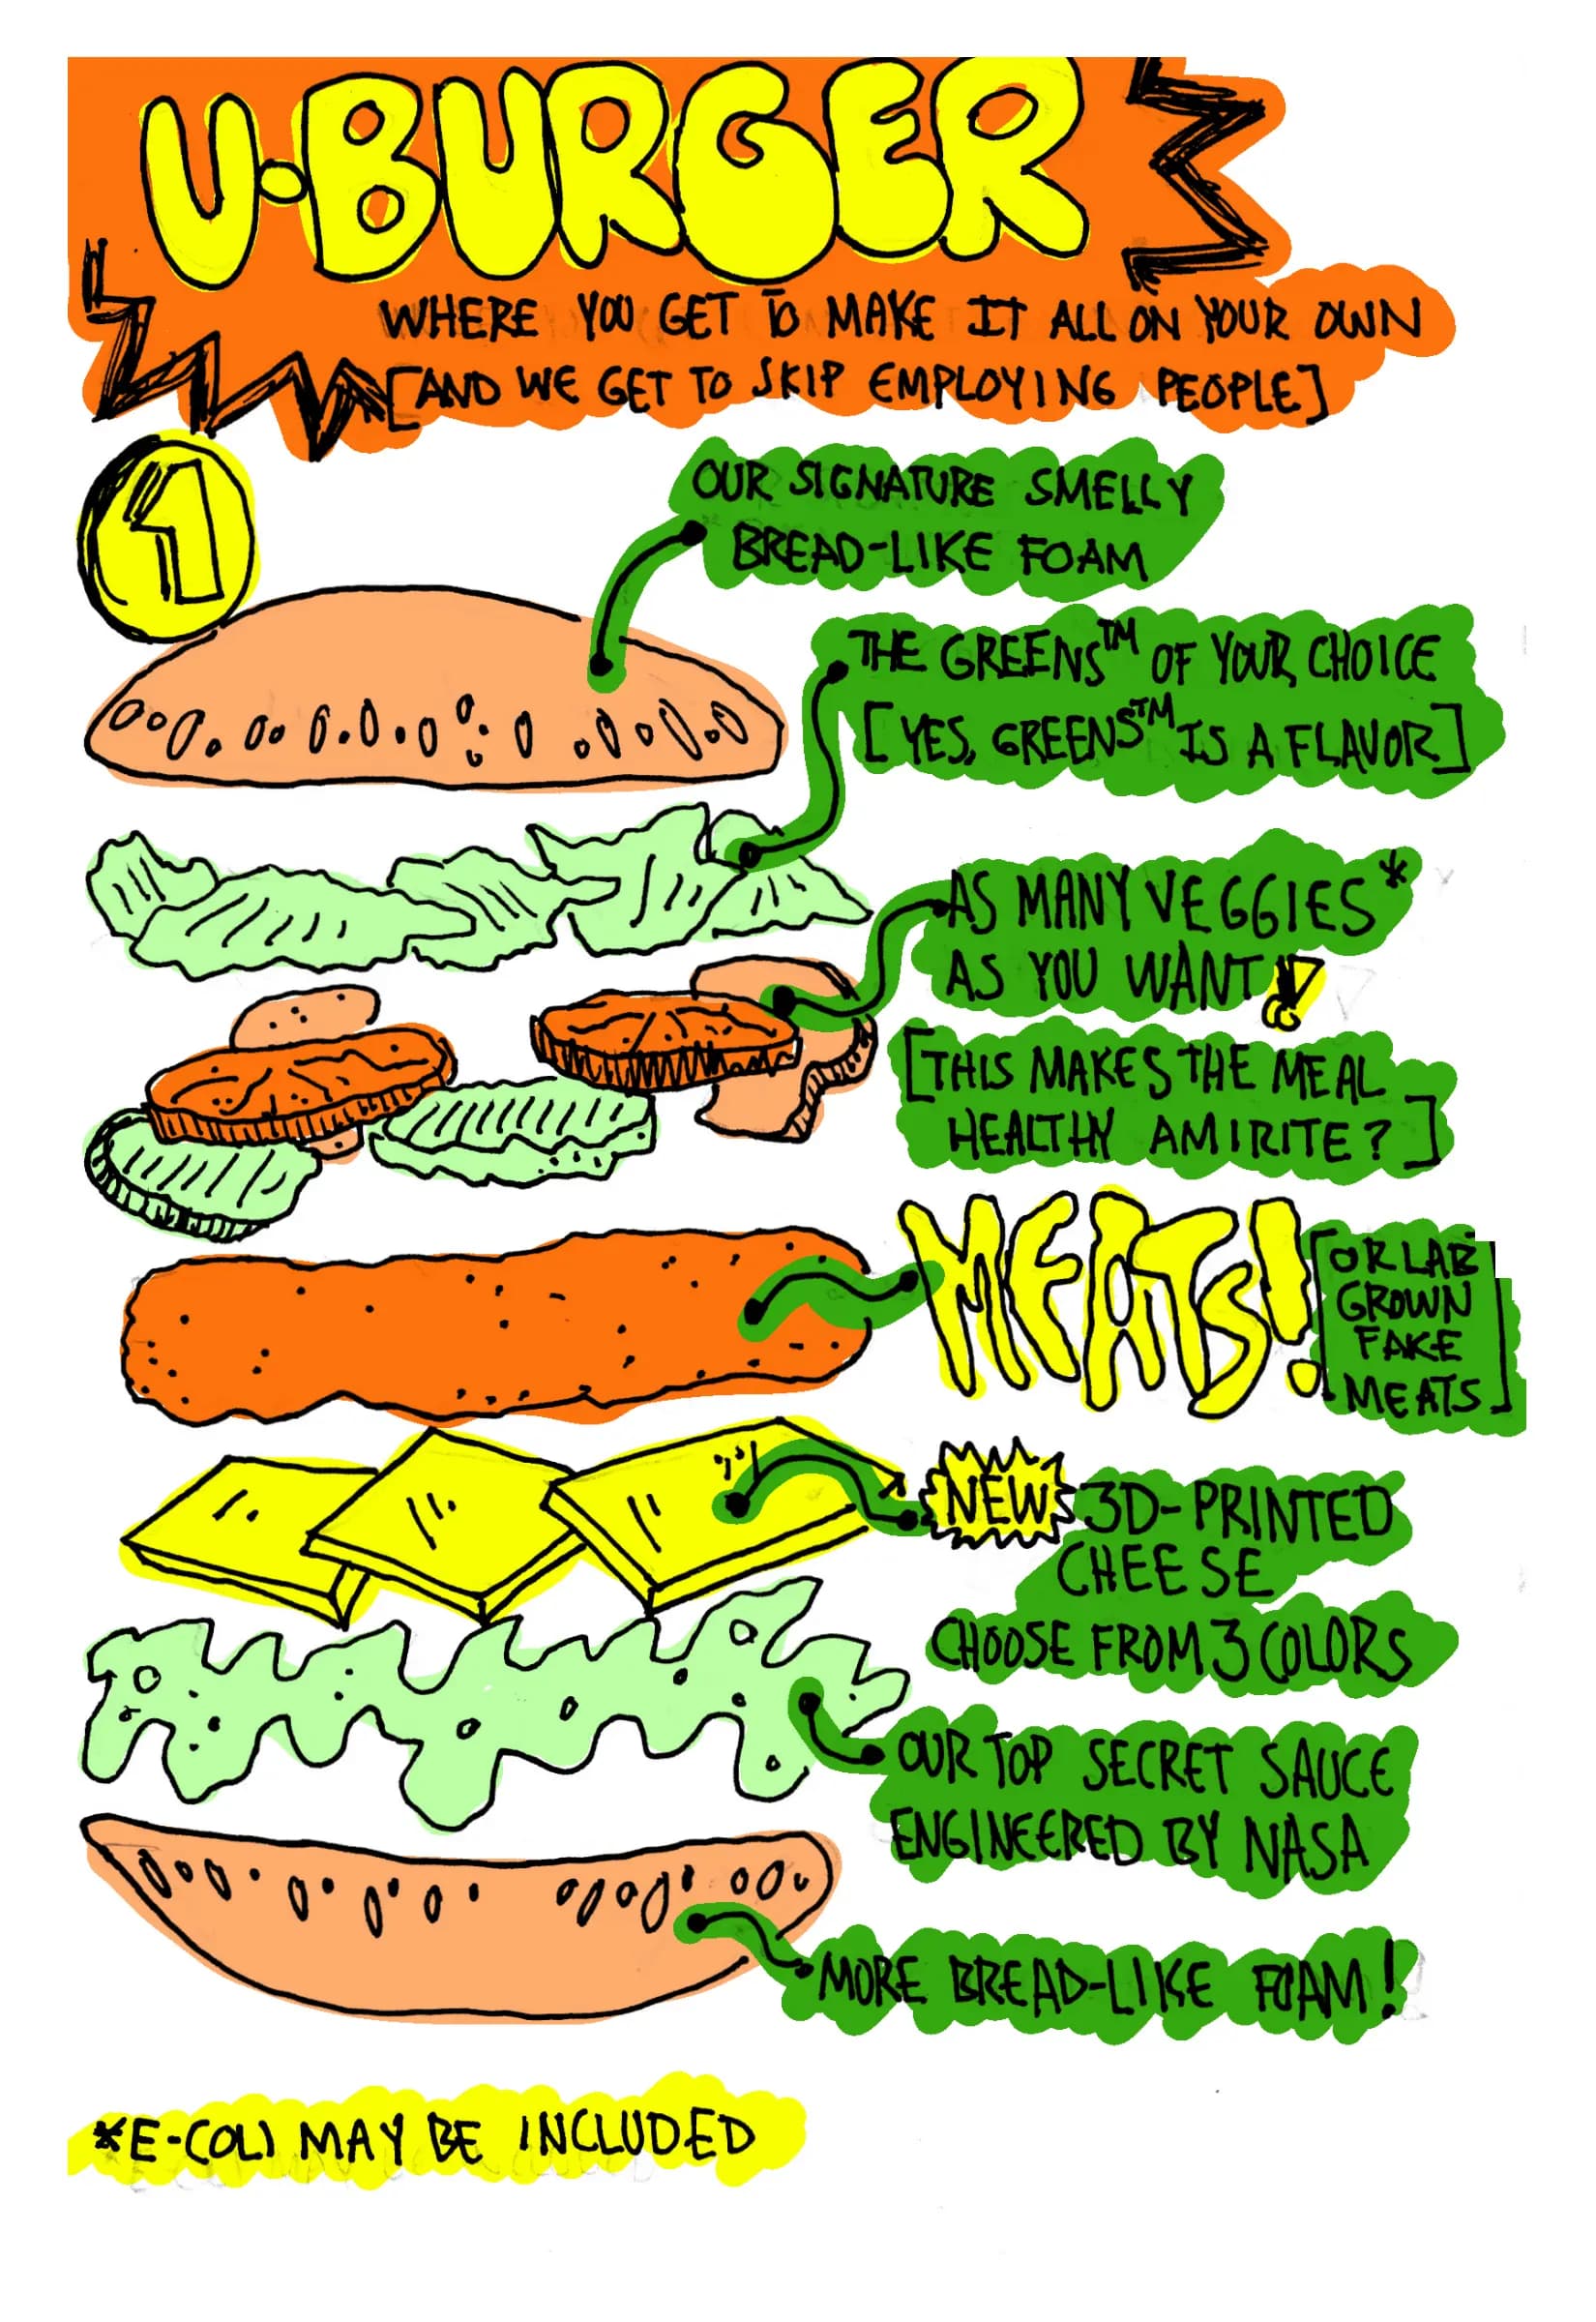 U·BURGER
WHERE YOU GET TO MAKE IT ALL ON YOUR OWN
[AND WE GET TO SKIP EMPLOYING PEOPLE]
1
OUR SIGNATURE SMELLY
BREAD-LIKE FOAM
THE GREENS™ OF YOUR CHOICE
[YES, GREENS™ IS A FLAVOR]
AS MANY VEGGIES*
AS YOU WANT!
[THIS MAKES THE MEAL
HEALTHY AMIRITE?]
MEATS!
[OR LAB
GROWN
FAKE
MEATS]
NEW 3D-PRINTED
CHEESE
CHOOSE FROM 3 COLORS
OUR TOP SECRET SAUCE
ENGINEERED BY NASA
MORE BREAD-LIKE FOAM!
*E-COLI MAY BE INCLUDED